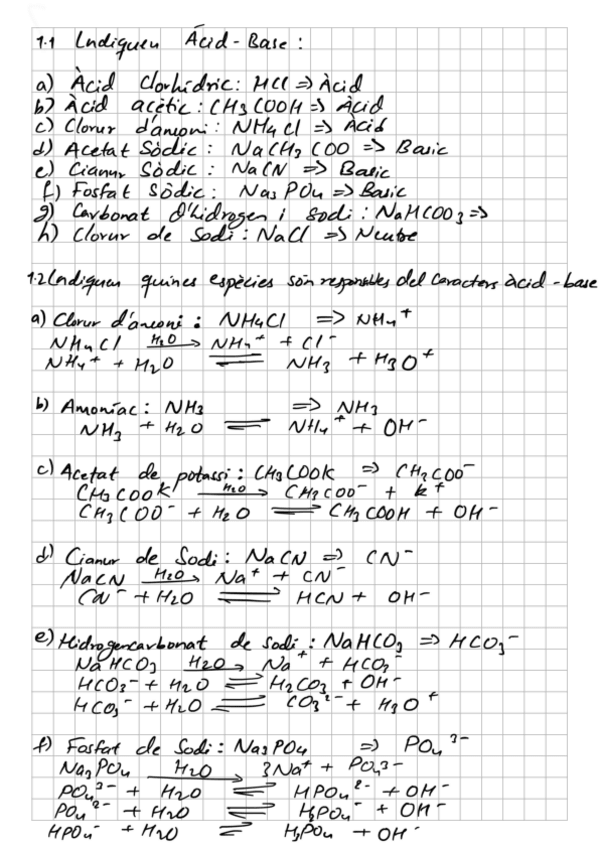 1.1 Indiquen Àcid-Base:
a) Àcid Clorhídric: HCl => Àcid
b) Àcid acètic: CH3COOH => Àcid
c) Clorur d'amoni: NH4Cl => Àcid
d) Acetat Sòdic: NaCH3COO => Basic
e) Cianur Sòdic: NaCN => Basic
f) Fosfat Sòdic: Na3PO4 => Basic
g) Carbonat d'hidrogen i sodi: NaHCOO3 =>
h) Clorur de Sodi: NaCl => Neutre
1.2 Indiquen quines espècies són responsables del caracters àcid-base
a) Clorur d'amoni: NH4Cl => NH4+
NH4Cl H2O→ NH4+ + Cl-
NH4+ + H2O ⇌ NH3 + H3O+
b) Amoníac: NH3 => NH3
NH3 + H2O ⇌ NH4+ + OH-
c) Acetat de potassi: CH3COOK => CH3COO-
CH3COOK H2O→ CH3COO- + K+
CH3COO- + H2O ⇌ CH3COOH + OH-
d) Cianur de Sodi: NaCN => CN-
NaCN H2O→ Na+ + CN-
CN- + H2O ⇌ HCN + OH-
e) Hidrogencarbonat de sodi: NaHCO3 => HCO3-
NaHCO3 H2O→ Na+ + HCO3-
HCO3- + H2O ⇌ H2CO3 + OH-
HCO3- + H2O ⇌ CO3 2- + H3O+
f) Fosfat de Sodi: Na3PO4 => PO4 3-
Na3PO4 H2O→ 3Na+ + PO4 3-
PO4 3- + H2O ⇌ HPO4 2- + OH-
PO4 2- + H2O ⇌ H2PO4- + OH-
HPO4- + H2O ⇌ H3PO4 + OH-